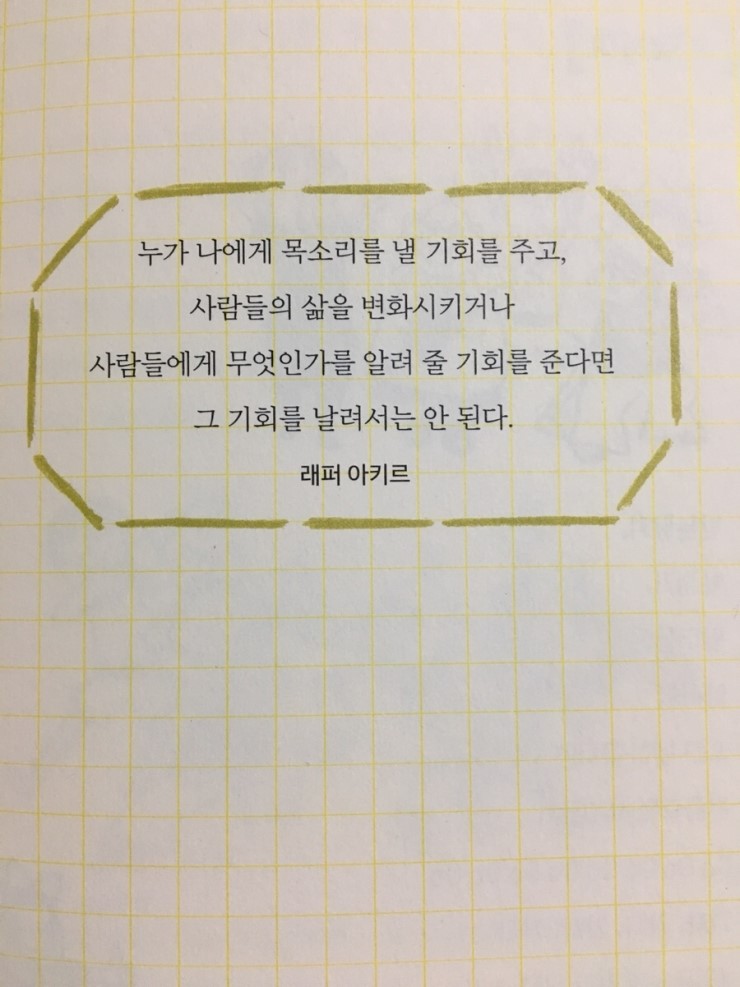 누가 나에게 목소리를 낼 기회를 주고,
사람들의 삶을 변화시키거나
사람들에게 무엇인가를 알려 줄 기회를 준다면
그 기회를 날려서는 안 된다.
래퍼 아키르